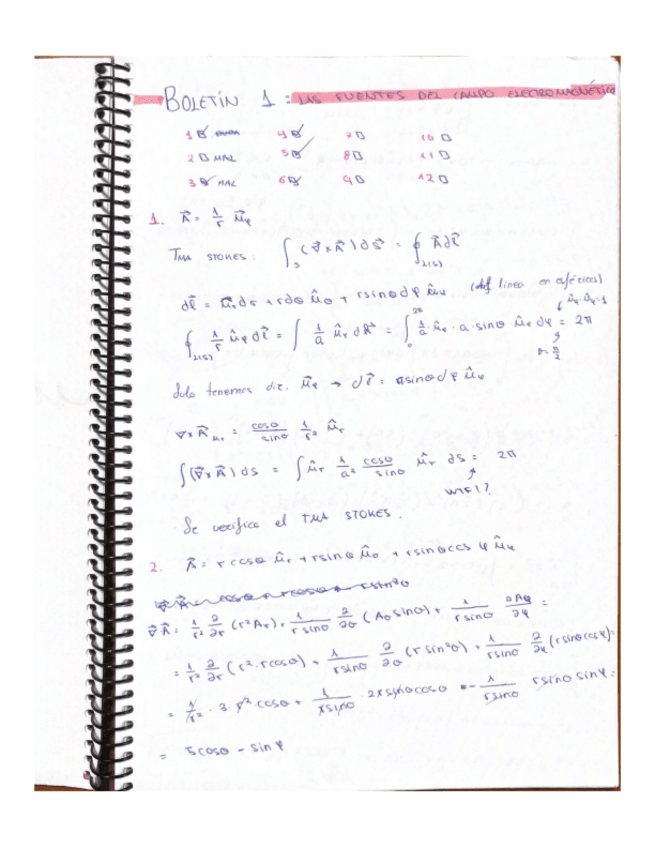 BOLETÍN 1: LAS FUENTES DEL CAMPO ELECTROMAGNÉTICO
1 ☑ 4 ☑ 7 ☐ 10 ☐
2 ☐ MAL 5 ☑ 8 ☐ 11 ☐
3 ☑ MAL 6 ☑ 9 ☐ 12 ☐
1. A⃗ = 1/r û_φ
TMA STOKES: ∫_S (∇⃗×A⃗) ds⃗ = ∮_λ(s) A⃗ dl⃗
dl⃗ = û_r dr + r dθ û_θ + r sinθ dφ û_φ (dif linea en esféricas)
û_φ·û_φ=1
∮_λ(s) 1/r û_φ dl⃗ = ∫ 1/a û_φ dl⃗ = ∫_0^2π 1/a û_φ · a · sinθ û_φ dφ = 2π
θ = π/2
Solo tenemos dir. û_φ → dl⃗ = a sinθ dφ û_φ
∇×A⃗_ur = cosθ/sinθ 1/r² û_r
∫(∇⃗×A⃗) ds = ∫ û_r 1/a² cosθ/sinθ û_r ds = 2π
WTF!?
Se verifica el TMA STOKES.
2. A⃗ = r cosθ û_r + r sinθ û_θ + r sinθ cos φ û_φ
∇⃗A⃗ = 1/r² ∂/∂r (r² A_r) + 1/(r sinθ) ∂/∂θ (A_θ sinθ) + 1/(r sinθ) ∂A_φ/∂φ =
= 1/r² ∂/∂r (r² · r cosθ) + 1/(r sinθ) ∂/∂θ (r sin²θ) + 1/(r sinθ) ∂/∂φ (r sinθ cosφ) =
= 1/r² · 3 · r² · cosθ + 1/(r sinθ) · 2r sinθ cosθ - 1/(r sinθ) r sinθ sinφ =
= 5 cosθ - sin φ